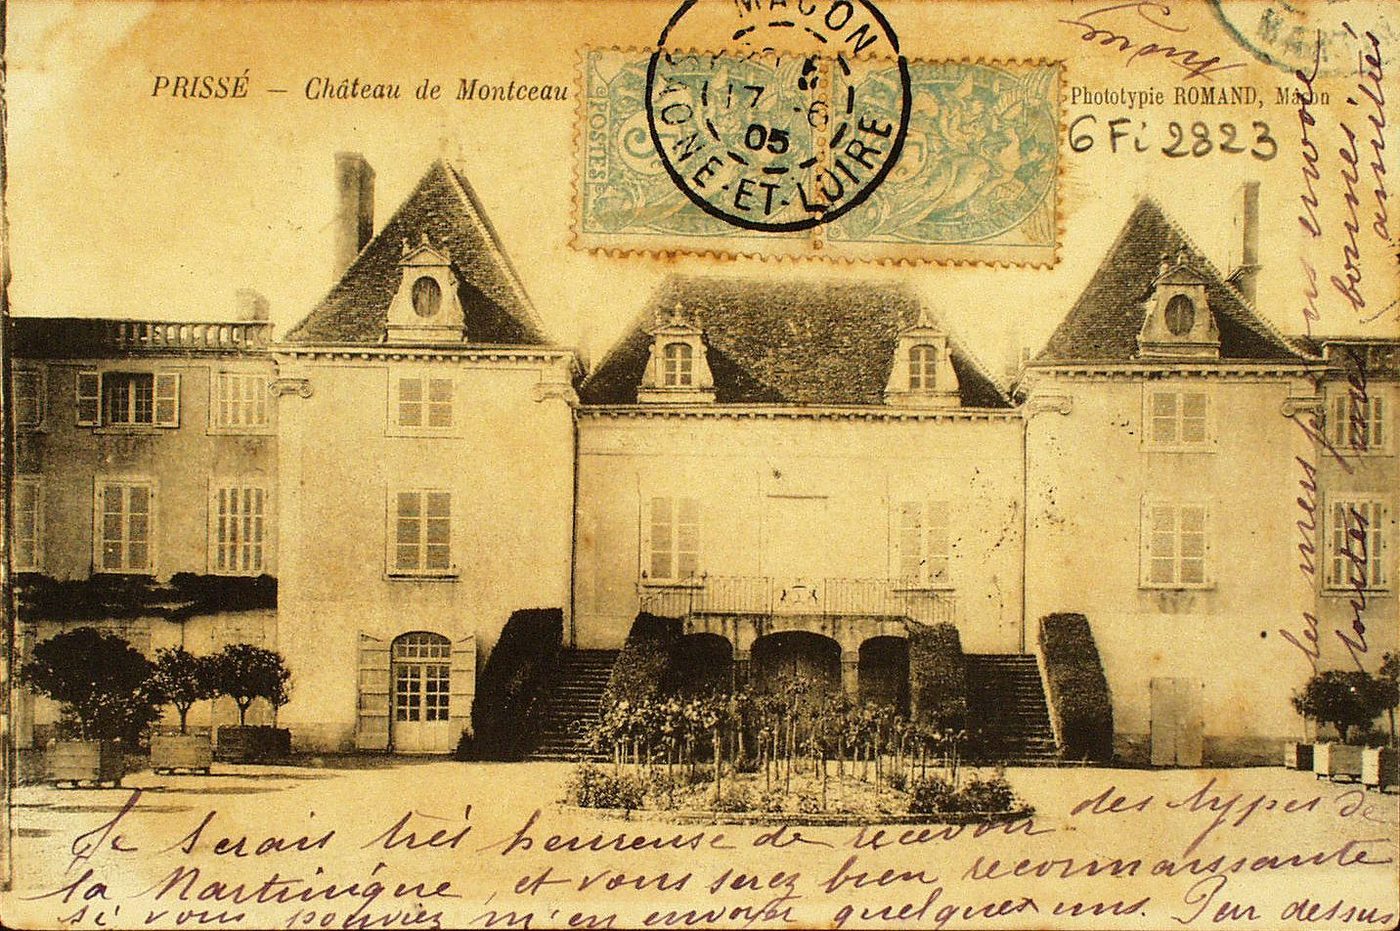 PRISSÉ — Château de Montceau
POSTES
5
MACON
17 -6
05
SAONE-ET-LOIRE
Phototypie ROMAND, Mâcon
6 Fi 2823
Je serais très heureuse de recevoir des types de
la Martinique, et vous serez bien reconnaissante
si vous pouviez m'en envoyer quelques uns. Par dessus
les mers je vous envoie
toutes mes bonnes
amitiés